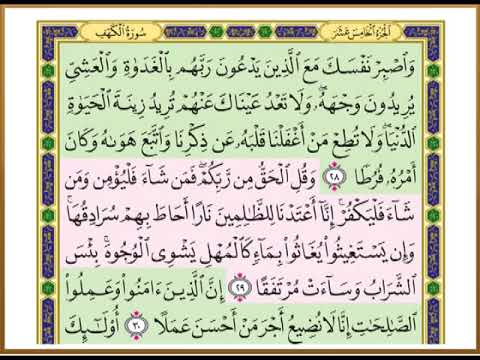 الجزء الخامس عشر
سورة الكهف
وَٱصْبِرْ نَفْسَكَ مَعَ ٱلَّذِينَ يَدْعُونَ رَبَّهُم بِٱلْغَدَوٰةِ وَٱلْعَشِىِّ
يُرِيدُونَ وَجْهَهُۥ ۖ وَلَا تَعْدُ عَيْنَاكَ عَنْهُمْ تُرِيدُ زِينَةَ ٱلْحَيَوٰةِ
ٱلدُّنْيَا ۖ وَلَا تُطِعْ مَنْ أَغْفَلْنَا قَلْبَهُۥ عَن ذِكْرِنَا وَٱتَّبَعَ هَوَىٰهُ وَكَانَ
أَمْرُهُۥ فُرُطًا ٢٨ وَقُلِ ٱلْحَقُّ مِن رَّبِّكُمْ ۖ فَمَن شَآءَ فَلْيُؤْمِن وَمَن
شَآءَ فَلْيَكْفُرْ ۚ إِنَّآ أَعْتَدْنَا لِلظَّـٰلِمِينَ نَارًا أَحَاطَ بِهِمْ سُرَادِقُهَا ۚ
وَإِن يَسْتَغِيثُوا۟ يُغَاثُوا۟ بِمَآءٍ كَٱلْمُهْلِ يَشْوِى ٱلْوُجُوهَ ۚ بِئْسَ
ٱلشَّرَابُ وَسَآءَتْ مُرْتَفَقًا ٢٩ إِنَّ ٱلَّذِينَ ءَامَنُوا۟ وَعَمِلُوا۟
ٱلصَّـٰلِحَـٰتِ إِنَّا لَا نُضِيعُ أَجْرَ مَنْ أَحْسَنَ عَمَلًا ٣٠ أُو۟لَـٰٓئِكَ